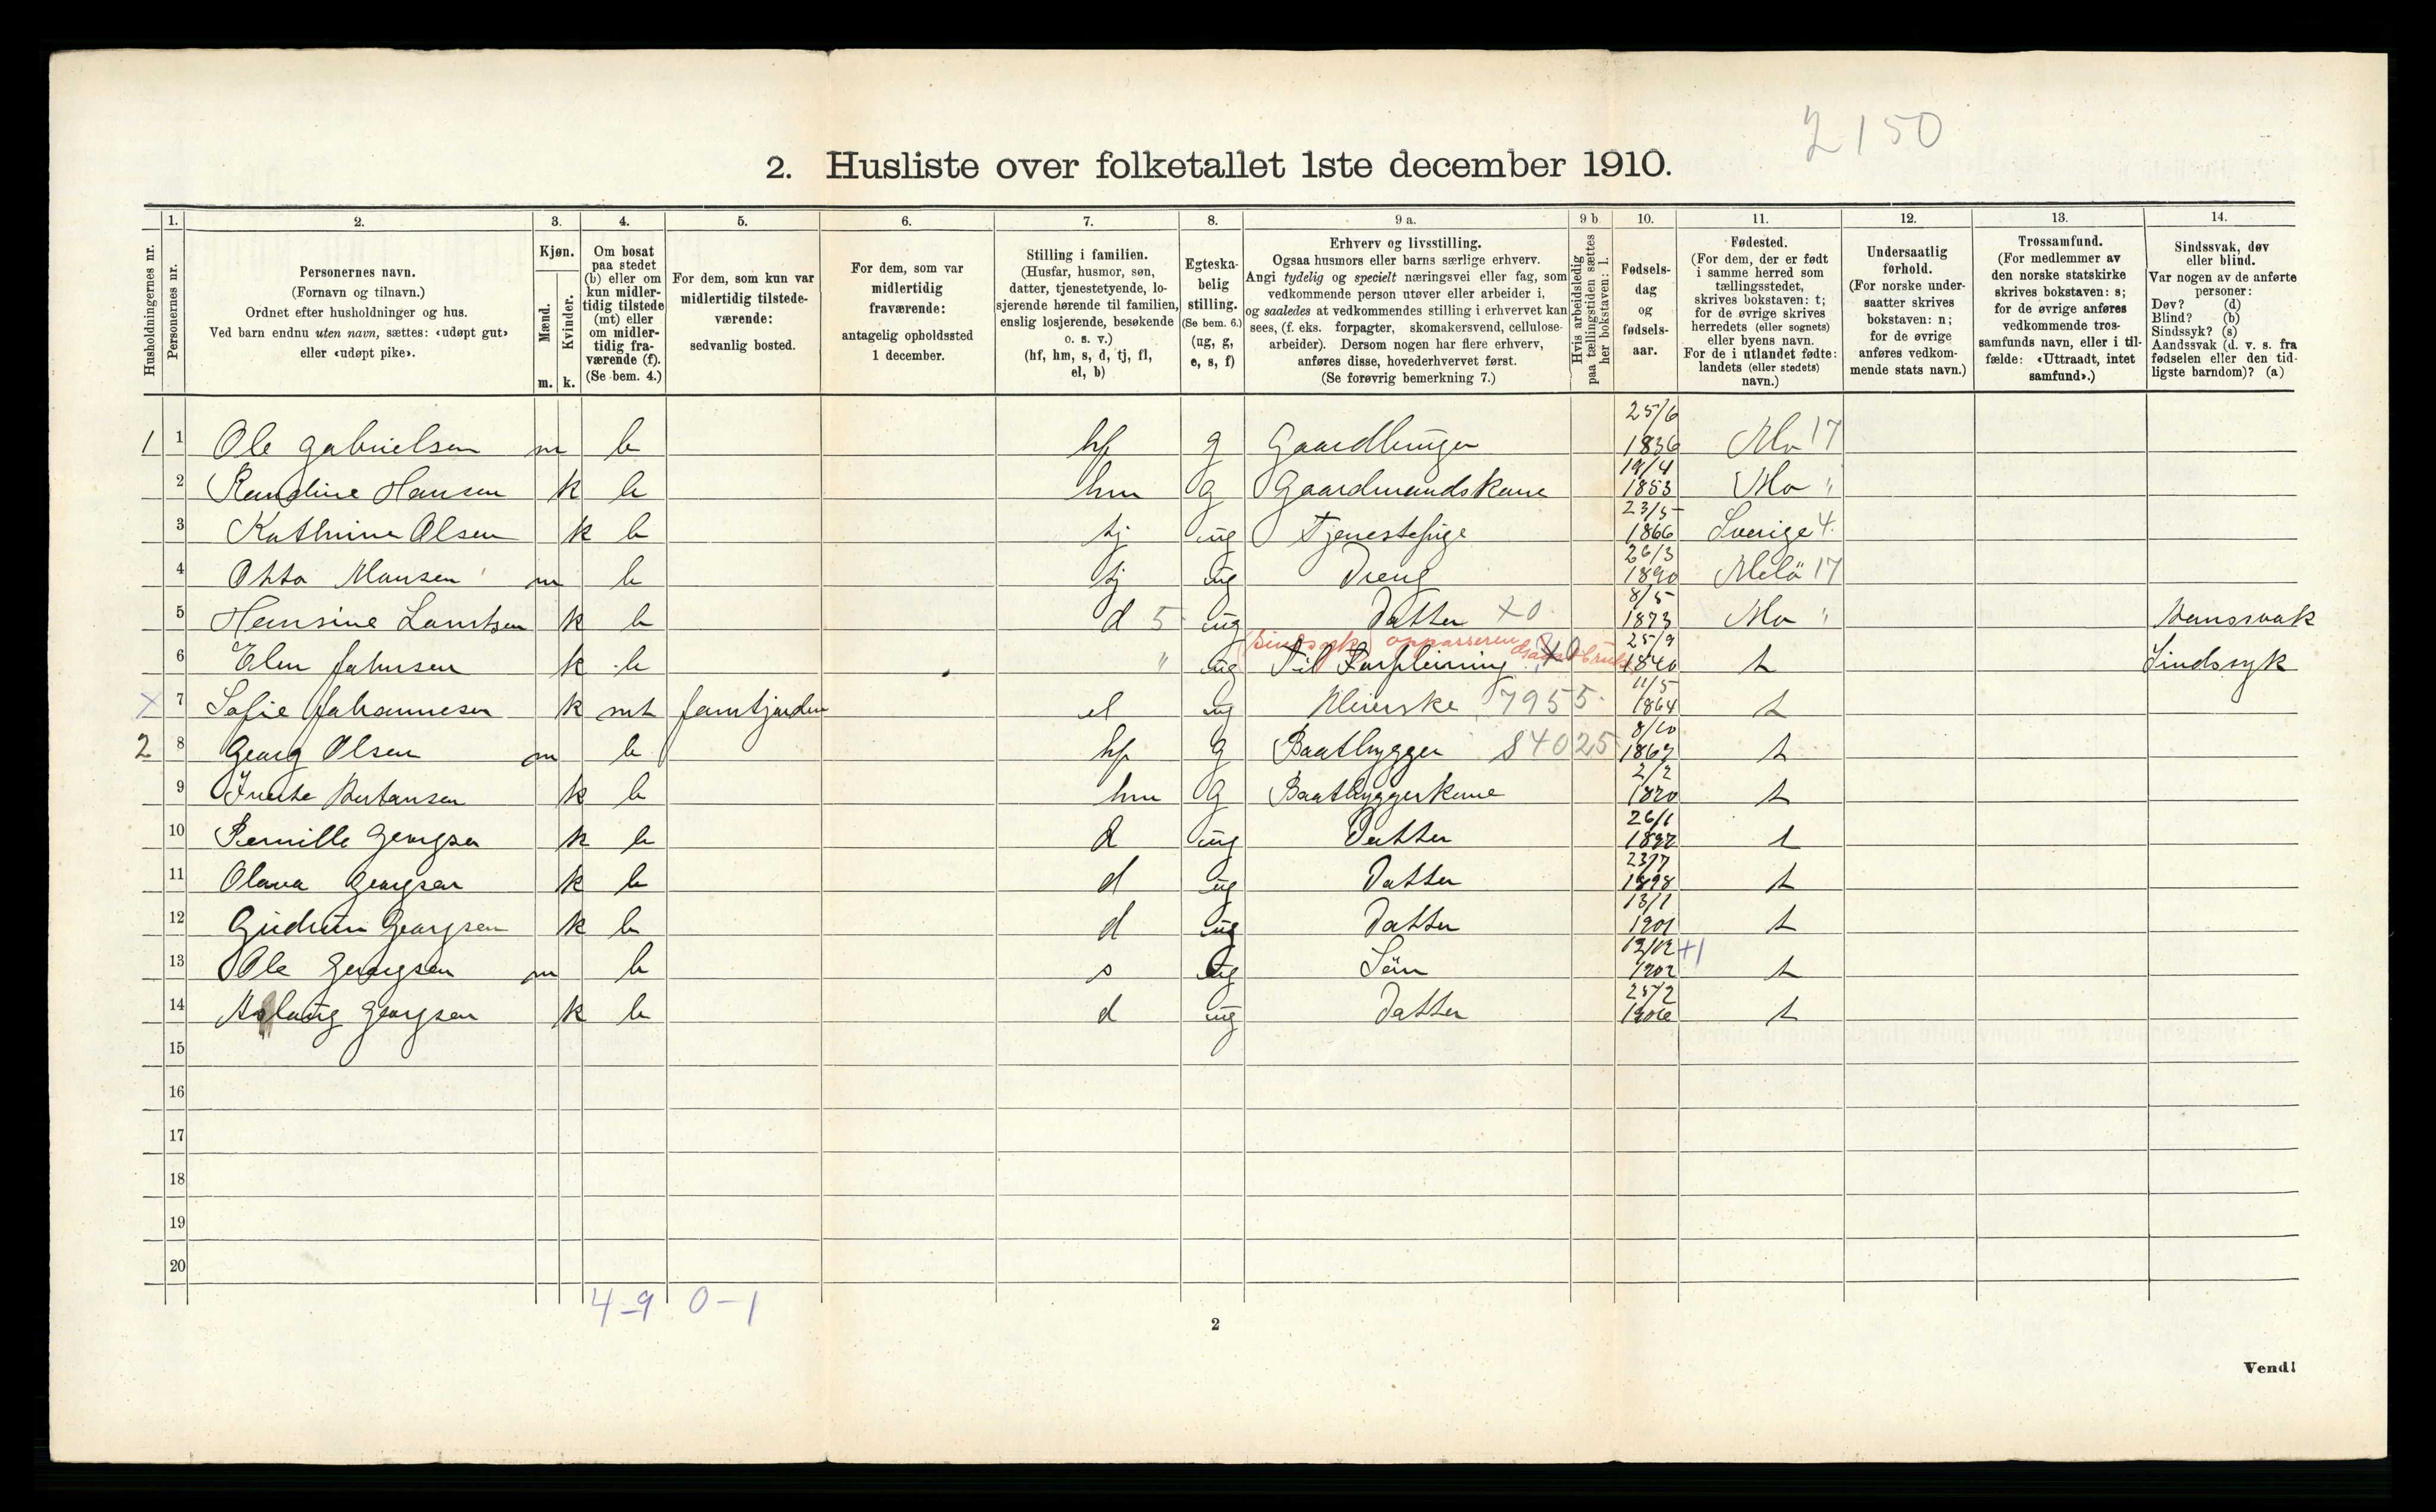 2150
2. Husliste over folketallet 1ste december 1910.
Husholdningernes nr.
1.
Personernes nr.
2.
Personernes navn.
(Fornavn og tilnavn.)
Ordnet efter husholdninger og hus.
Ved barn endnu uten navn, sættes: «udøpt gut»
eller «udøpt pike».
3.
Kjøn.
Mænd.
Kvinder.
m. k.
4.
Om bosat
paa stedet
(b) eller om
kun midler-
tidig tilstede
(mt) eller
om midler-
tidig fra-
værende (f).
(Se bem. 4.)
5.
For dem, som kun var
midlertidig tilstede-
værende:
sedvanlig bosted.
6.
For dem, som var
midlertidig
fraværende:
antagelig opholdssted
1 december.
7.
Stilling i familien.
(Husfar, husmor, søn,
datter, tjenestetyende, lo-
sjerende hørende til familien,
enslig losjerende, besøkende
o. s. v.)
(hf, hm, s, d, tj, fl,
el, b)
8.
Egteska-
belig
stilling.
(Se bem. 6.)
(ug, g,
e, s, f)
9 a.
Erhverv og livsstilling.
Ogsaa husmors eller barns særlige erhverv.
Angi tydelig og specielt næringsvei eller fag, som
vedkommende person utøver eller arbeider i,
og saaledes at vedkommendes stilling i erhvervet kan
sees, (f. eks. forpagter, skomakersvend, cellulose-
arbeider). Dersom nogen har flere erhverv,
anføres disse, hovederhvervet først.
(Se forøvrig bemerkning 7.)
9 b
Hvis arbeidsledig
paa tællingstiden sættes
her bokstaven: l.
10.
Fødsels-
dag
og
fødsels-
aar.
11.
Fødested.
(For dem, der er født
i samme herred som
tællingsstedet,
skrives bokstaven: t;
for de øvrige skrives
herredets (eller sognets)
eller byens navn.
For de i utlandet fødte:
landets (eller stedets)
navn.)
12.
Undersaatlig
forhold.
(For norske under-
saatter skrives
bokstaven: n;
for de øvrige
anføres vedkom-
mende stats navn.)
13.
Trossamfund.
(For medlemmer av
den norske statskirke
skrives bokstaven: s;
for de øvrige anføres
vedkommende tros-
samfunds navn, eller i til-
fælde: «Uttraadt, intet
samfund».)
14.
Sindssvak, døv
eller blind.
Var nogen av de anførte
personer:
Døv? (d)
Blind? (b)
Sindssyk? (s)
Aandssvak (d. v. s. fra
fødselen eller den tid-
ligste barndom)? (a)
1 1 Ole Gabrielsen m b hf g Gaardbruger 25/6 1836 Mo 17
2 Randine Hansen k b hm g Gaardmandskone 19/4 1853 Mo "
3 Kathrine Olsen k b tj ug Tjenestepige 23/5 1866 Sverige 4.
4 Otto Hansen m b tj ug Dreng 26/3 1890 Melö 17
5 Hansine Lauritsen k b d 5 ug Datter x0. 8/5 1873 Mo "
6 Elen Johnsen k b " ug Til Forpleining 25/9 1840 t Sindssyk
x 7 Sofie Johannesen k mt el ug 7955. 11/5 1864 t
2 8 Georg Olsen m b hf g Baatbygger 84025 8/10 t
9 k b hm g Baatbyggerkone 2/2 t
10 Pernille Georgsen k b d ug Datter 26/1 t
11 Olava Georgsen k b d ug Datter 23/7 1898 t
12 Gudrun Georgsen k b d ug Datter 13/1 1901 t
13 Ole Georgsen m b s ug Sön 12/12 +1 1902 t
14 Aslaug Georgsen k b d ug Datter 25/2 1906 t
15
16
17
18
19
20
4-9 0-1
2
Vend!